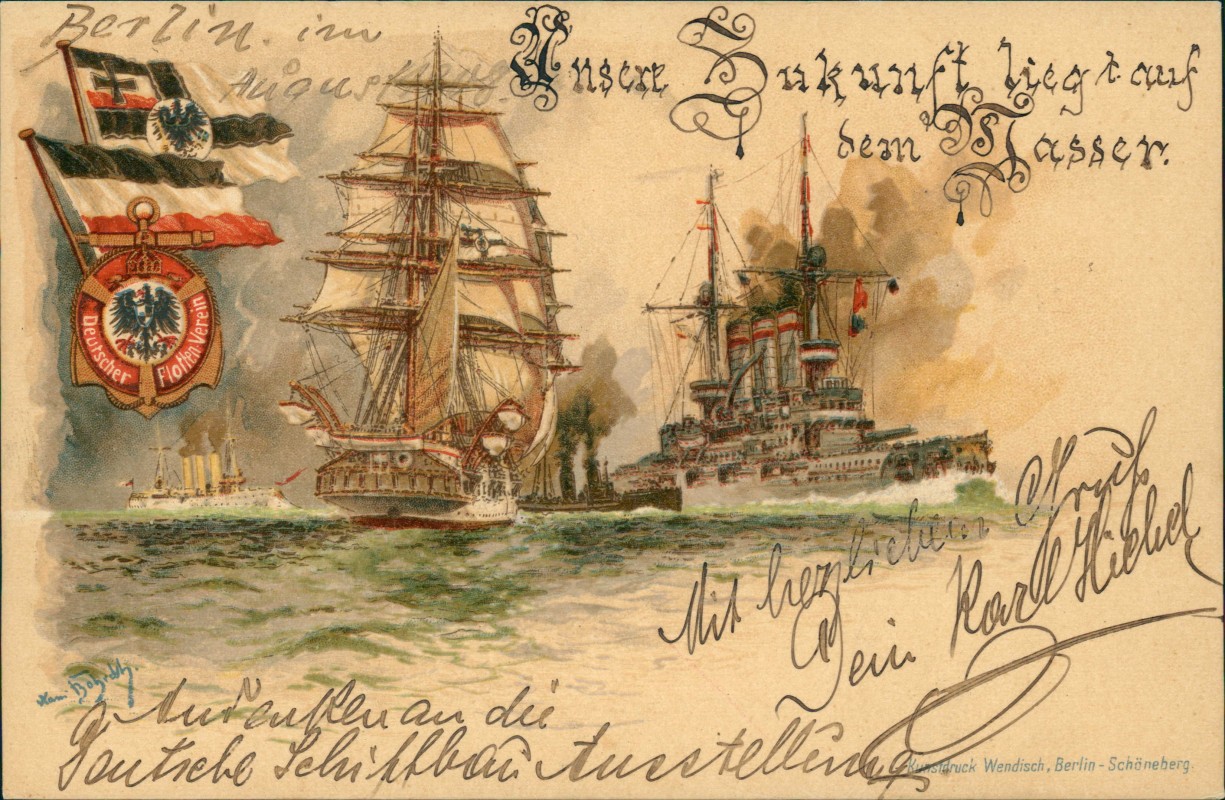 Berlin. im
August
Unsere Zukunft liegt auf
dem Wasser.
Deutscher Flotten-Verein
Mit herzlichem Gruß
Dein Karl
Hans Bohrdt.
Andenken an die
Deutsche Schiffbau Ausstellung
Kunstdruck Wendisch, Berlin-Schöneberg.